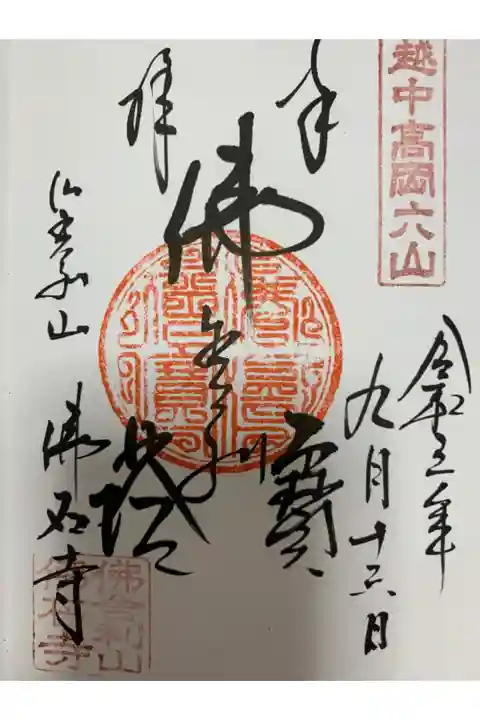 越中高岡六山
令和五年
九月十六日
奉拝
佛舎利
寶塔
仏舎利山
佛石寺
佛舎利山
佛石寺